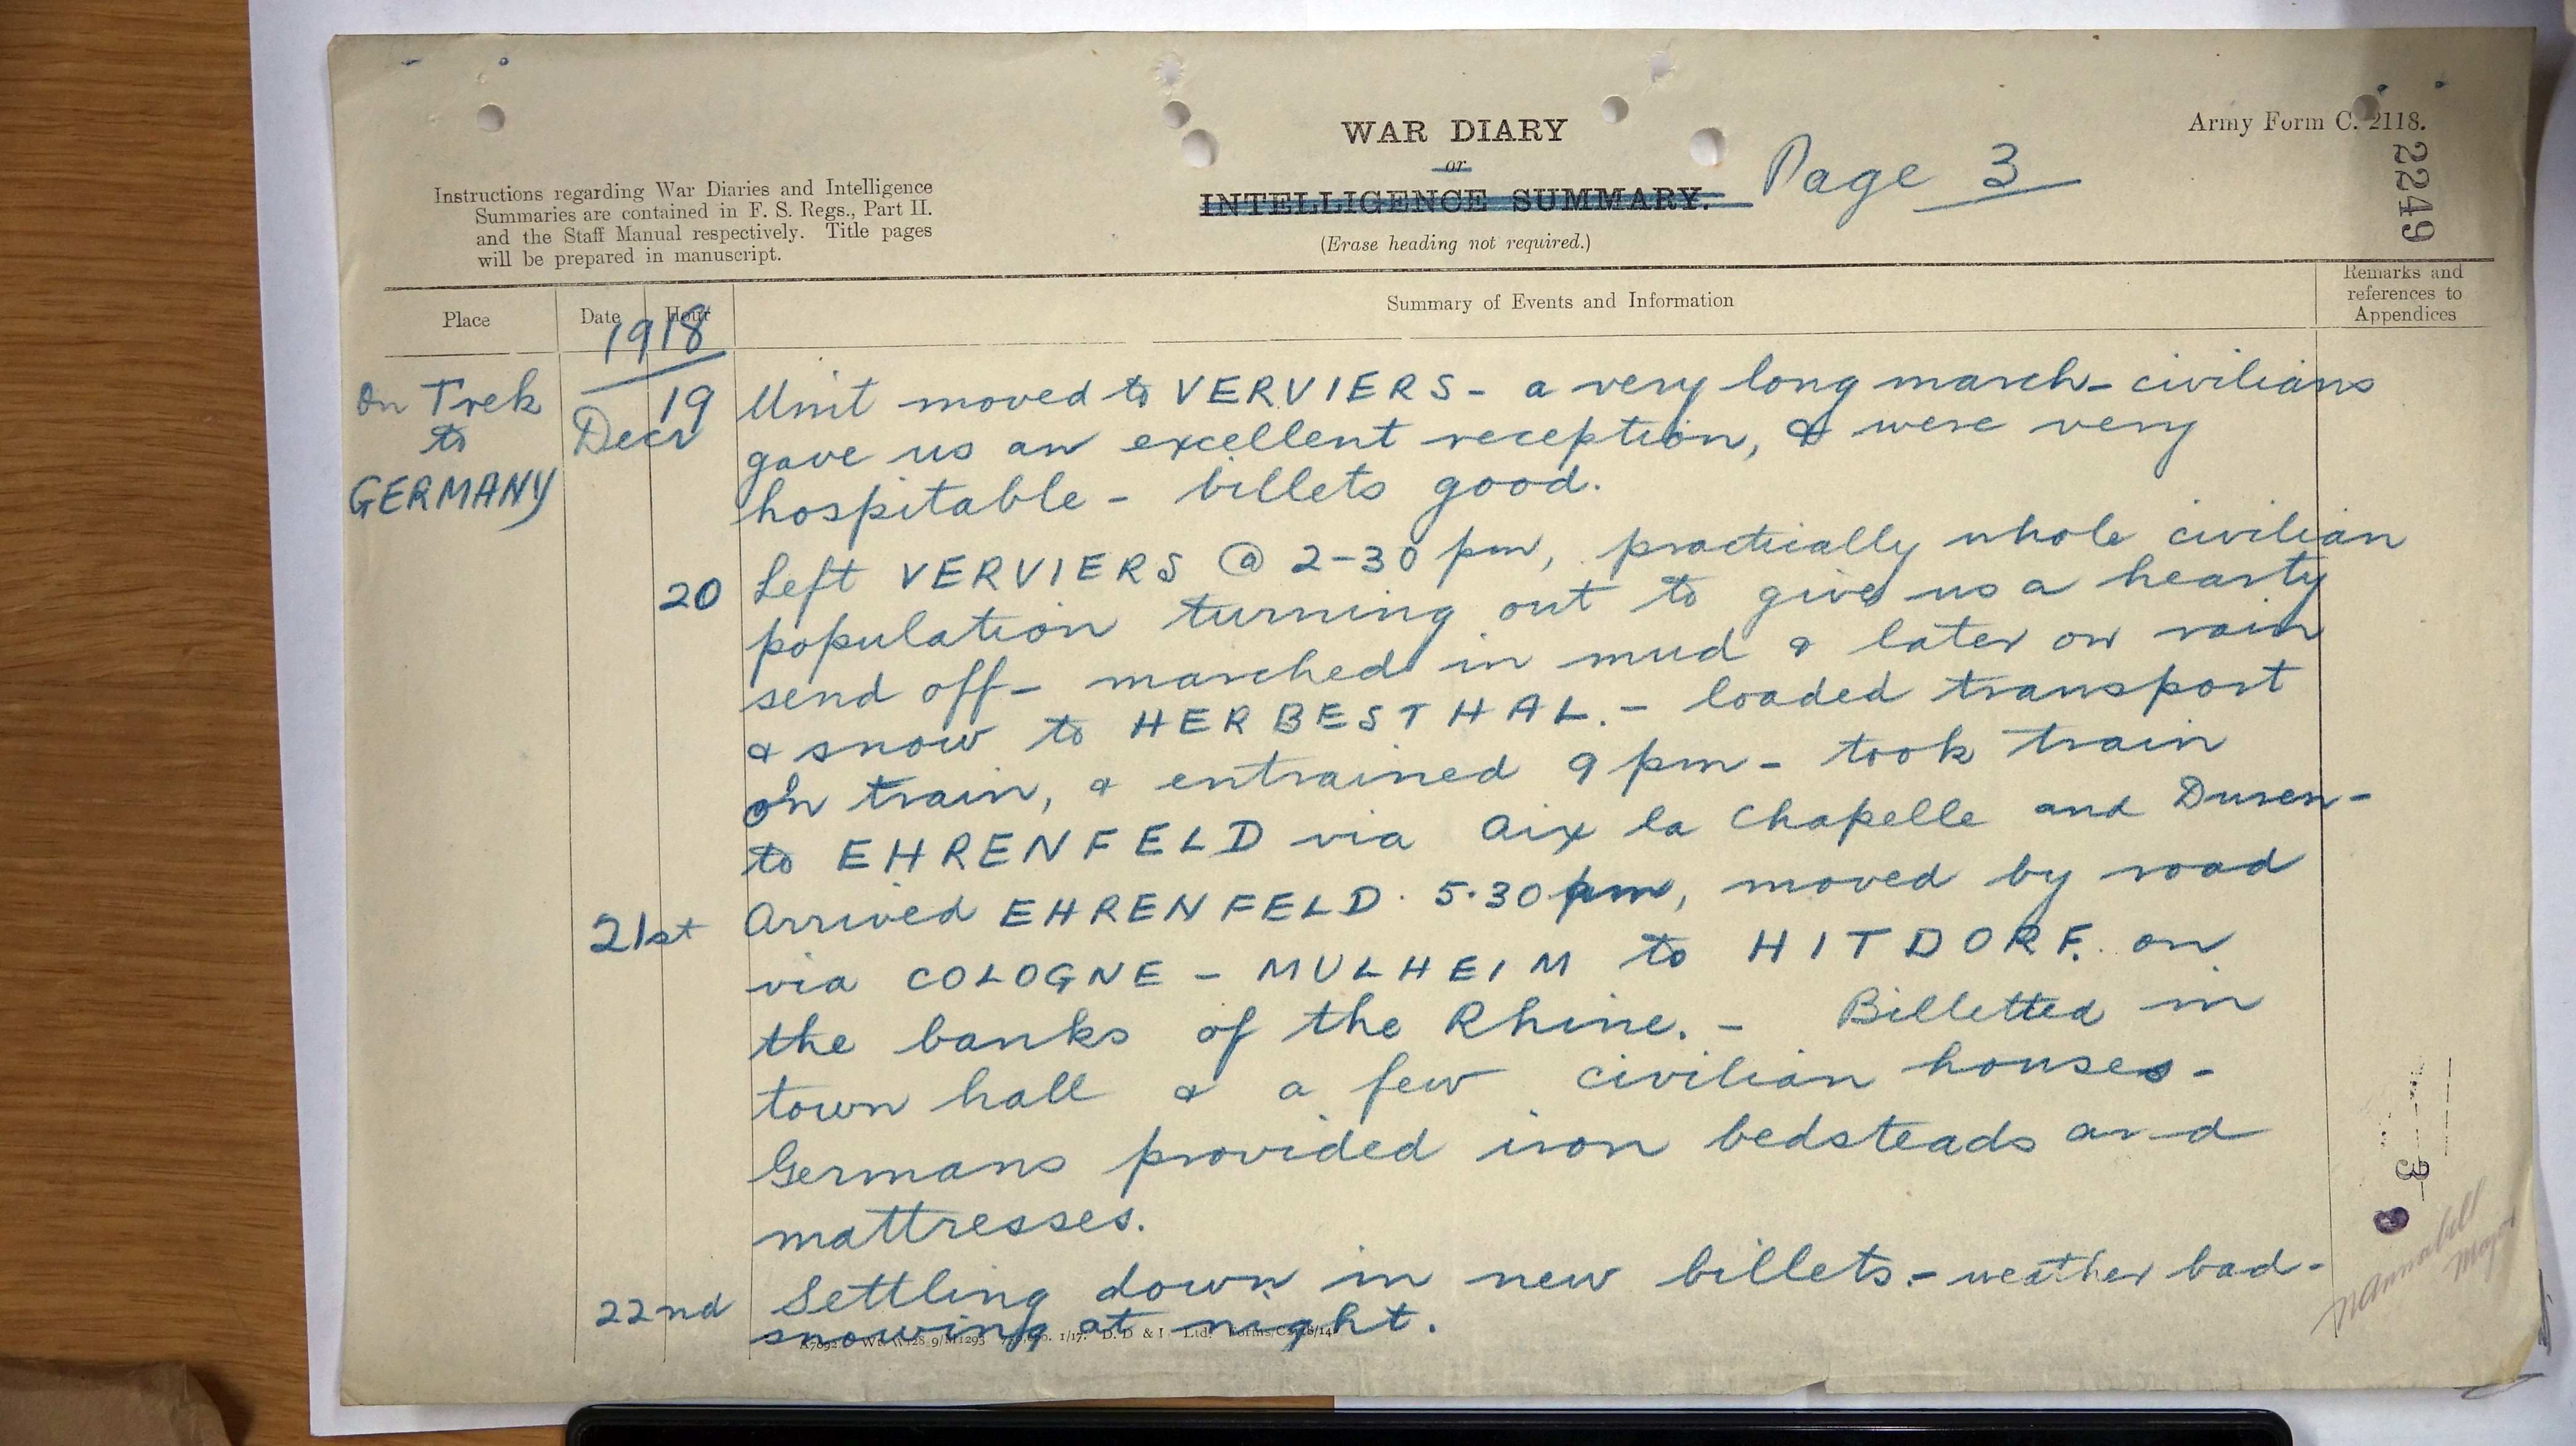 Army Form C. 2118.
2249
WAR DIARY
or
INTELLIGENCE SUMMARY.
Page 3
(Erase heading not required.)
Instructions regarding War Diaries and Intelligence
Summaries are contained in F. S. Regs., Part II.
and the Staff Manual respectively. Title pages
will be prepared in manuscript.
Place
Date
Hour
Summary of Events and Information
Remarks and
references to
Appendices
1918
On Trek
to
GERMANY
Decr
19
Unit moved to VERVIERS - a very long march - civilians
gave us an excellent reception, & were very
hospitable - billets good.
20
Left VERVIERS @ 2-30 pm, practically whole civilian
population turning out to give us a hearty
send off - marched in mud & later on rain
& snow to HERBESTHAL. - loaded transport
on train, & entrained 9 pm - took train
to EHRENFELD via Aix la Chapelle and Duren -
21st
Arrived EHRENFELD. 5.30 pm, moved by road
via COLOGNE - MULHEIM to HITDORF. on
the banks of the Rhine. - Billetted in
town hall & a few civilian houses -
Germans provided iron bedsteads and
mattresses.
22nd
Settling down in new billets. - weather bad -
snowing at night.
1/17. D. D & L Ltd. Forms/C2118/14
Major